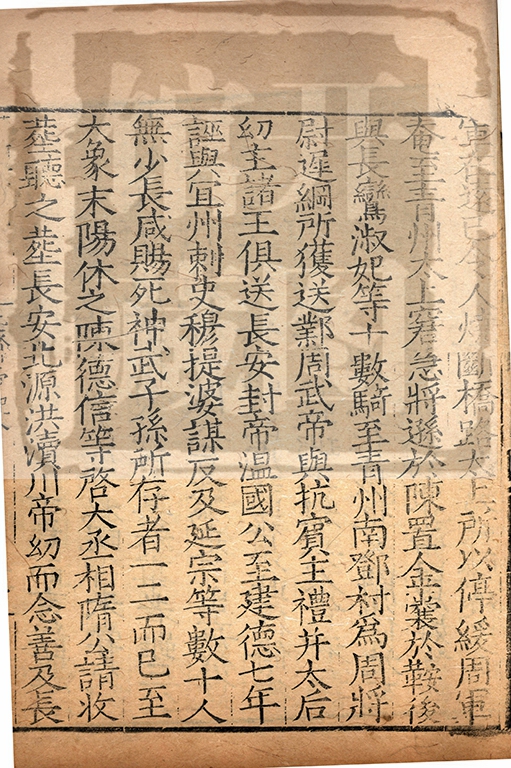 軍在遠已令人燒斷橋路太上所以停緩周軍
奄至青州太上窘急將遜於陳置金囊於鞍後
與長鸞淑妃等十數騎至青州南鄧村爲周將
尉遲綱所獲送鄴周武帝與抗賓主禮并太后
幼主諸王俱送長安封帝温國公至建德七年
誣與宜州刺史穆提婆謀反及延宗等數十人
無少長咸賜死神武子孫所存者一二而已至
大象末陽休之陳德信等啓大丞相隋公請收
葬聽之葬長安北源洪瀆川帝幼而念善及長